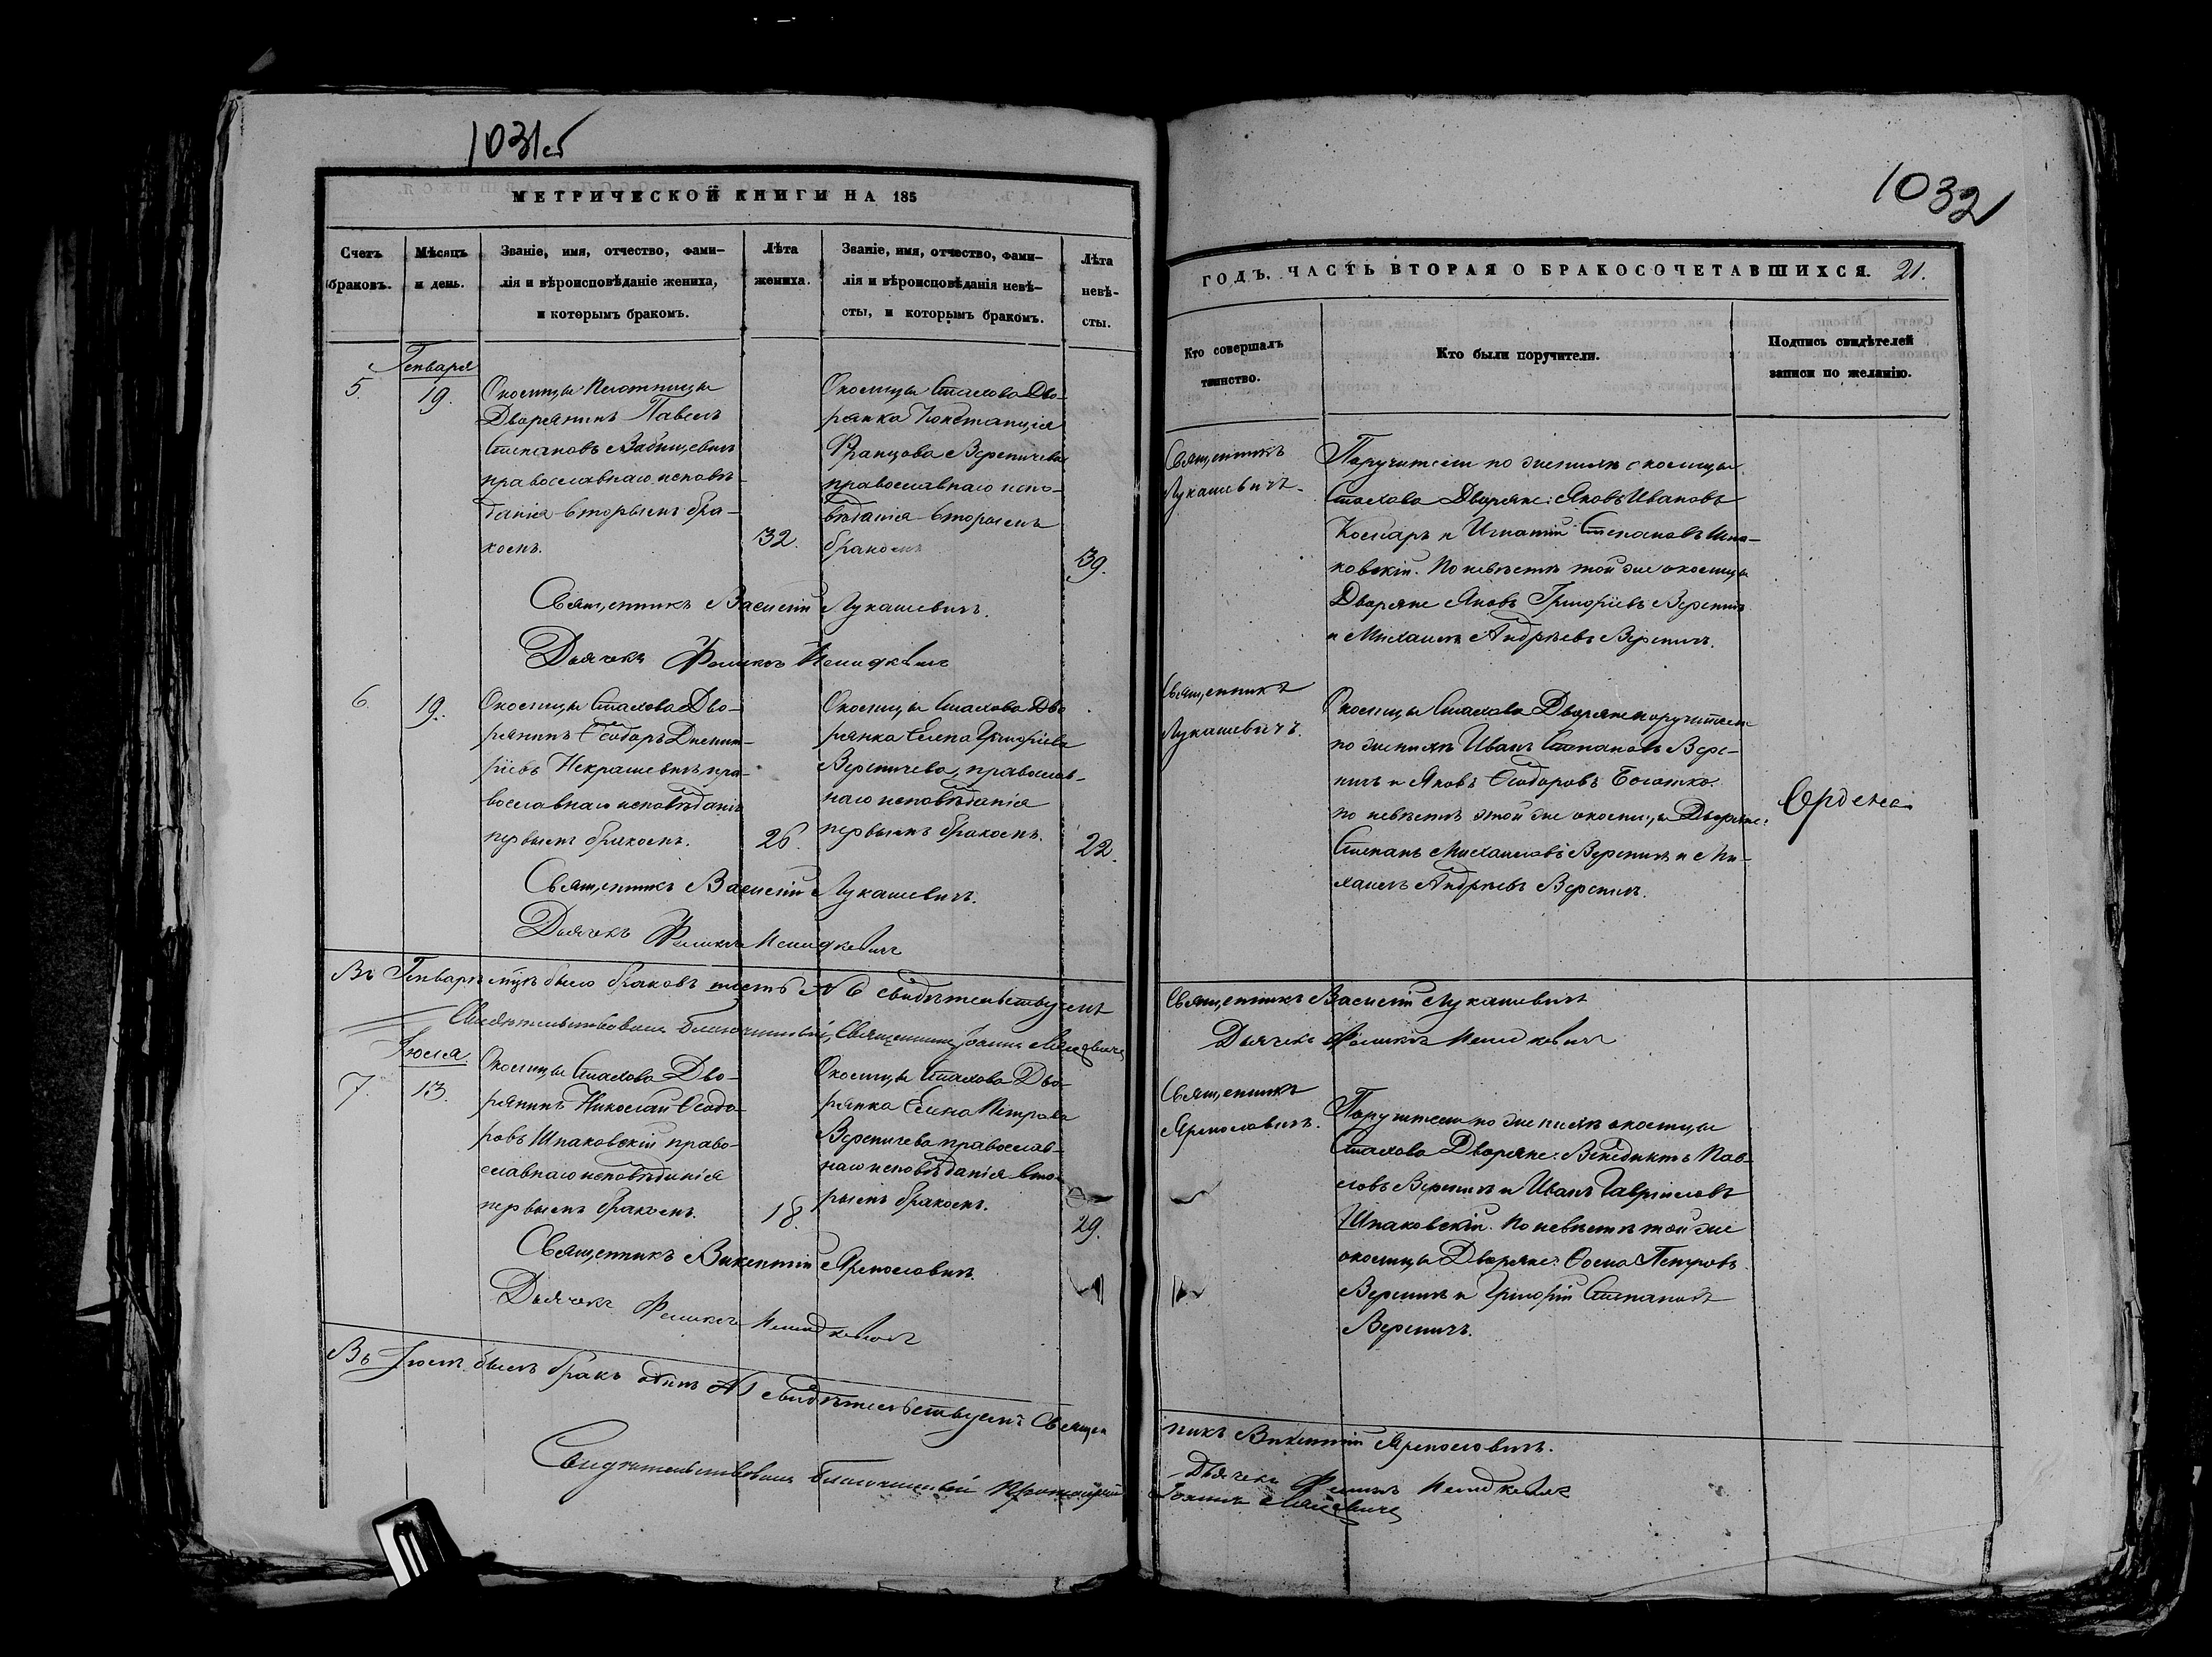 1031об
МЕТРИЧЕСКОЙ КНИГИ НА 185
Счетъ
браковъ.
Мѣсяцъ
и день.
Званіе, имя, отчество, фами-
лія и вѣроисповѣданіе жениха,
и которымъ бракомъ.
Лѣта
жениха.
Званіе, имя, отчество, фами-
лія и вѣроисповѣданія невѣ-
сты, и которымъ бракомъ.
Лѣта
невѣ-
сты.
Генваря
5.
19.
Околицы Плотницы
Дворянинъ Павелъ
Степановъ
православнаго исповѣ-
данія вторымъ бра-
комъ.
32.
Околицы Стахова Дво-
рянка Констанція
Францова Вереничева
православнаго испо-
вѣданія вторымъ
бракомъ
39.
Священникъ Василій Лукашевичъ.
Дьячекъ Феликсъ
6.
19.
Околицы Стахова Дво-
рянинъ Ѳеодоръ Димит-
ріевъ Некрашевичъ пра-
вославнаго исповѣданія
первымъ бракомъ.
26.
Околицы Стахова Дво
рянка Елена Григоріева
Вереничева, православ-
наго исповѣданія
первымъ бракомъ.
22.
Священникъ Василій Лукашевичъ.
Дьячекъ Феликсъ
Въ Генварѣ м-цѣ было браковъ шесть N 6 свидѣтельствуемъ
Свидѣтельствовалъ Благочинный, Священникъ Іоаннъ
Іюля.
7.
13.
Околицы Стахова Дво-
рянинъ Николай Ѳеодо-
ровъ Шпаковскій право-
славнаго исповѣданія
первымъ бракомъ.
18.
Околицы Стахова Дво-
рянка Елена Петрова
Вереничева православ-
наго исповѣданія вто-
рымъ бракомъ.
29.
Священникъ Викентій Ярмоловичъ.
Дьячекъ Феликсъ
Въ Іюлѣ былъ бракъ одинъ N 1 свидѣтельствуемъ Священ
Свидѣтельствовалъ Благочинный Протоіерей
1032
ГОДЪ. ЧАСТЬ ВТОРАЯ О БРАКОСОЧЕТАВШИХСЯ. 21.
Кто совершалъ
таинство.
Кто были поручители.
Подпись свидѣтелей
записи по желанію.
Священникъ
Лукашевичъ.
Поручители по женихѣ околицы
Стахова Дворяне: Яковъ Ивановъ
Колларъ и Игнатій Степановъ Шпа-
ковскій. По невѣстѣ той же околицы
Дворяне Яковъ Григоріевъ Вереничъ
и Михаилъ Андреевъ Вереничъ.
Священникъ
Лукашевичъ.
Околицы Стахова Дворяне поручители
по женихѣ Иванъ Степановъ Вере-
ничъ и Яковъ Ѳеодоровъ
по невѣстѣ этой же околицы Дворяне:
Степанъ Михайловъ Вереничъ и Ми-
хаилъ Андреевъ Вереничъ.
Священникъ Василій Лукашевичъ
Дьячекъ Феликсъ
Священникъ
Ярмоловичъ.
Поручители по женихѣ околицы
Стахова Дворяне: Венедиктъ Пав-
ловъ Вереничъ и Иванъ Гавріиловъ
Шпаковскій. По невѣстѣ той же
околицы Дворяне: Ѳома Петровъ
Вереничъ и Григорій Степановъ
Вереничъ.
никъ Викентій Ярмоловичъ.
Дьячекъ Феликсъ
Іоаннъ